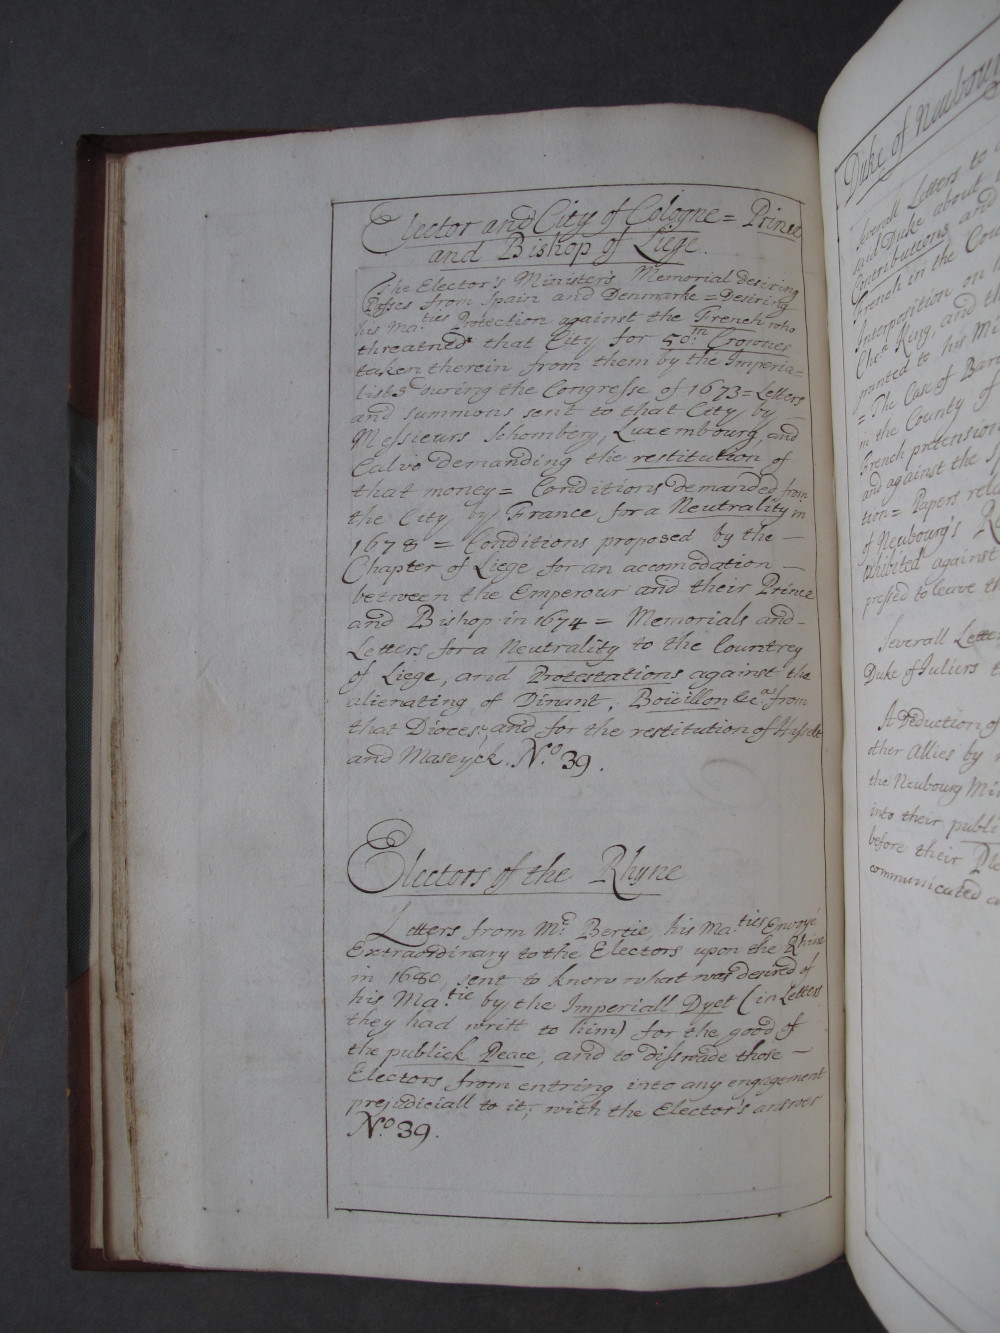 Elector and City of Cologne = Prince
and Bishop of Liege.
The Elector's Ministers Memorial desiring
Passes from Spain and Denmarke = Desiring
his Ma.ties Protection against the French who
threatned that City for 50.m Crownes
taken therein from them by the Imperia=
lists during the Congresse of 1673 = Letters
and summons sent to that City by
Messieurs Schomberg, Luxembourg, and
Calvo demanding the restitution of
that money = Conditions demanded from
the City by France for a Neutrality in
1678 = Conditions proposed by the —
Chapter of Liege for an accomodation —
between the Emperour and their Prince
and Bishop in 1674 = Memorials and -
Letters for a Neutrality to the Countrey
of Liege, and Protestations against the
alienating of Dinant, Boüillon &c.a from
that Dioces, and for the restitution of Hasselt
and Maseyck. N.o 39.
Electors of the Rhyne
Letters from M.r Bertie, his Ma.ties Envoyé
Extraordinary to the Electors upon the Rhine
in 1680, sent to know what was desired of
his Ma.tie by the Imperiall Dyet (in Letters
they had writt to him) for the good of
the publick Peace, and to disswade those —
Electors from entring into any engagement
prejudiciall to it; with the Elector's answer
N.o 39.
Duke of Neubour
Severall Letters to
said Duke about
Contributions and
French in the Cou
Interposition on
Chr.n King, and th
printed to his M
= The Case of Bar
in the County of
French pretension
and against the Sp
tion = Papers rela
of Neubourg's R
exhibited against
pressed to leave th
Severall Letter
Duke of Juliers t
A Deduction of
other Allies by
the Neubourg Min
into their publi
before their Ple
communicated a